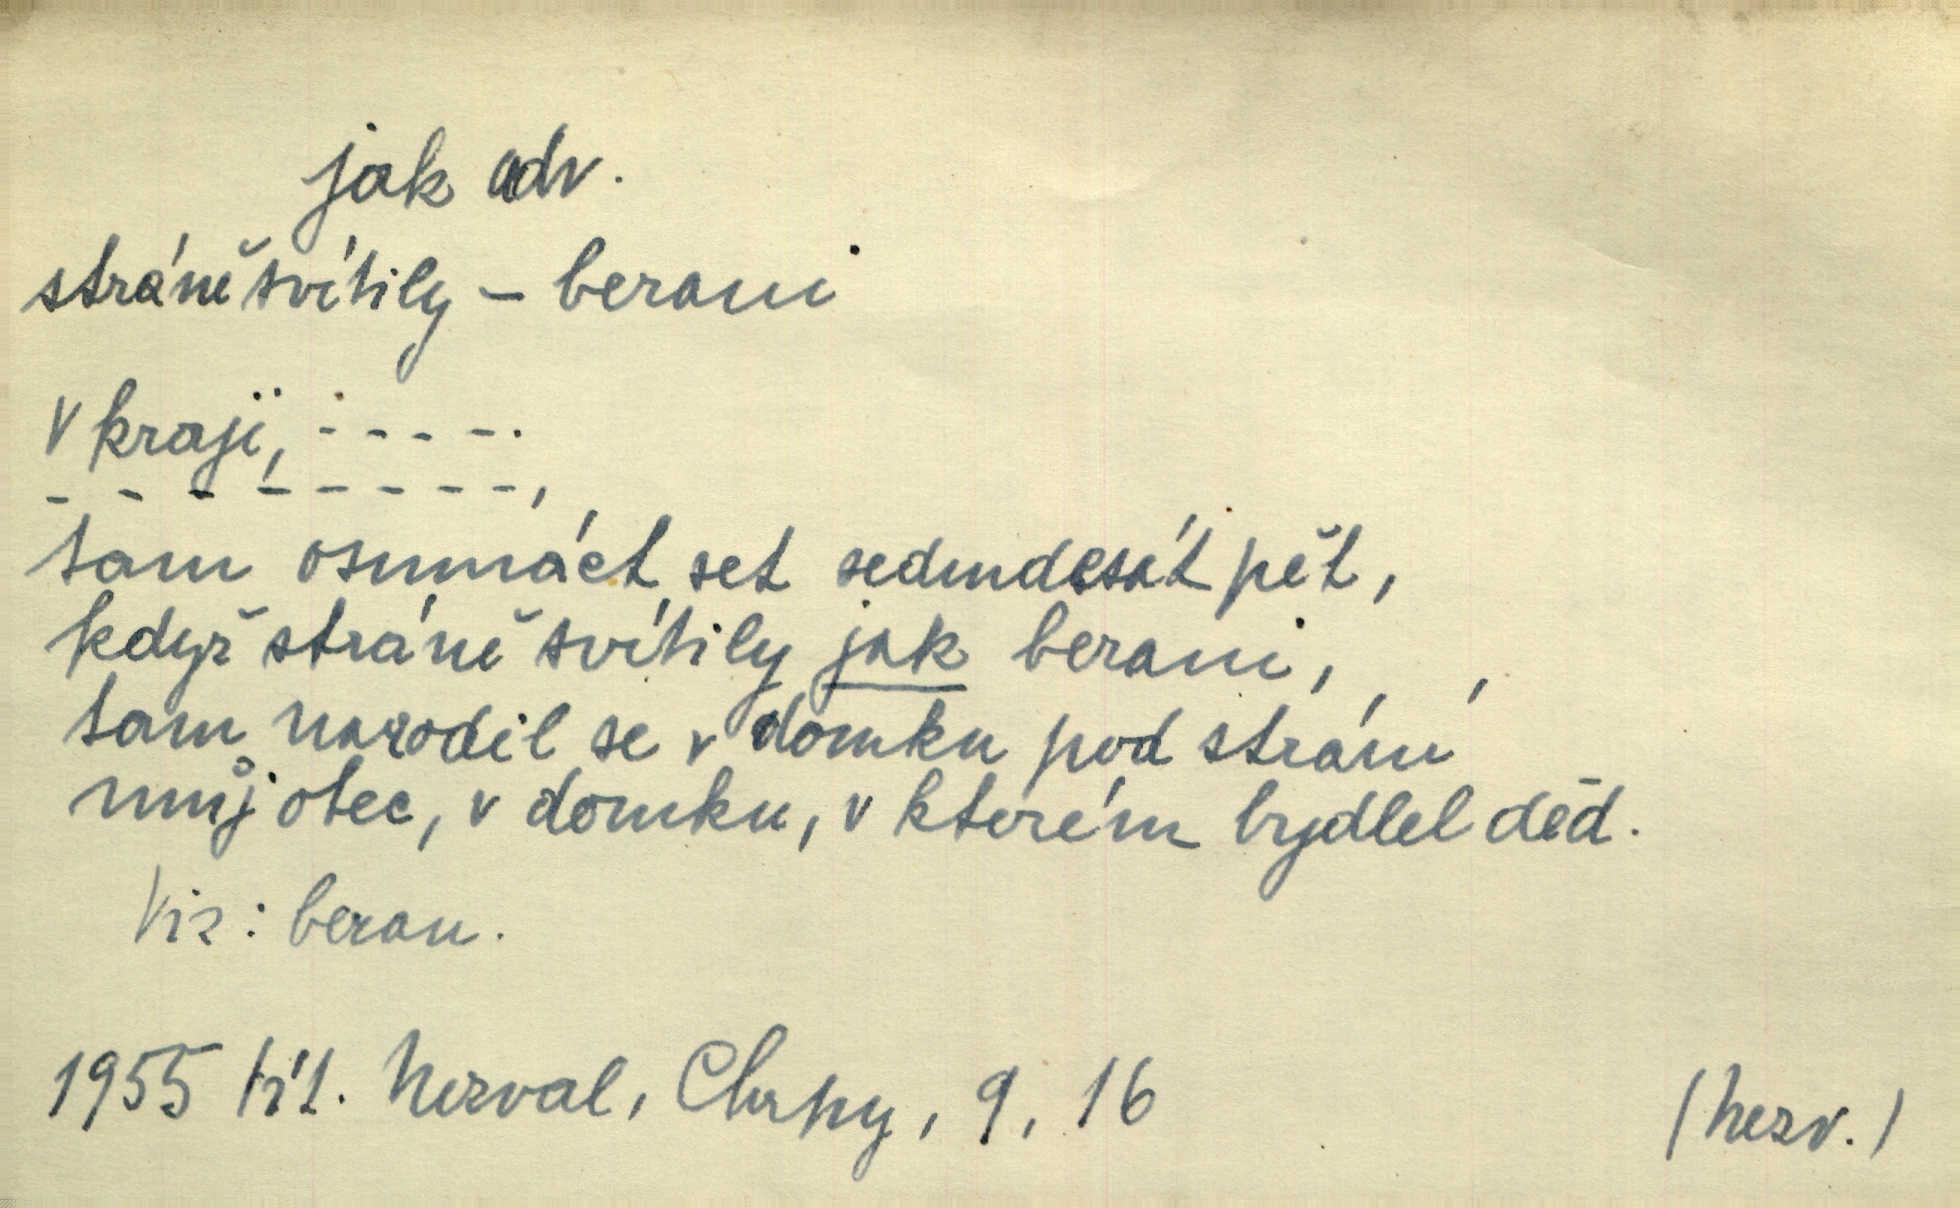 jak adv.
stráně svítily – berani
V kraji, - - - - -.
- - - - - - - - -,
tam osmnáct set sedmdesát pět,
když stráně svítily jak berani,
tam narodil se v domku pod strání
můj otec, v domku, v kterém bydlel děd.
Viz: beran.
1955 Vít. Nezval, Chrpy, 9, 16
(Nezv.)